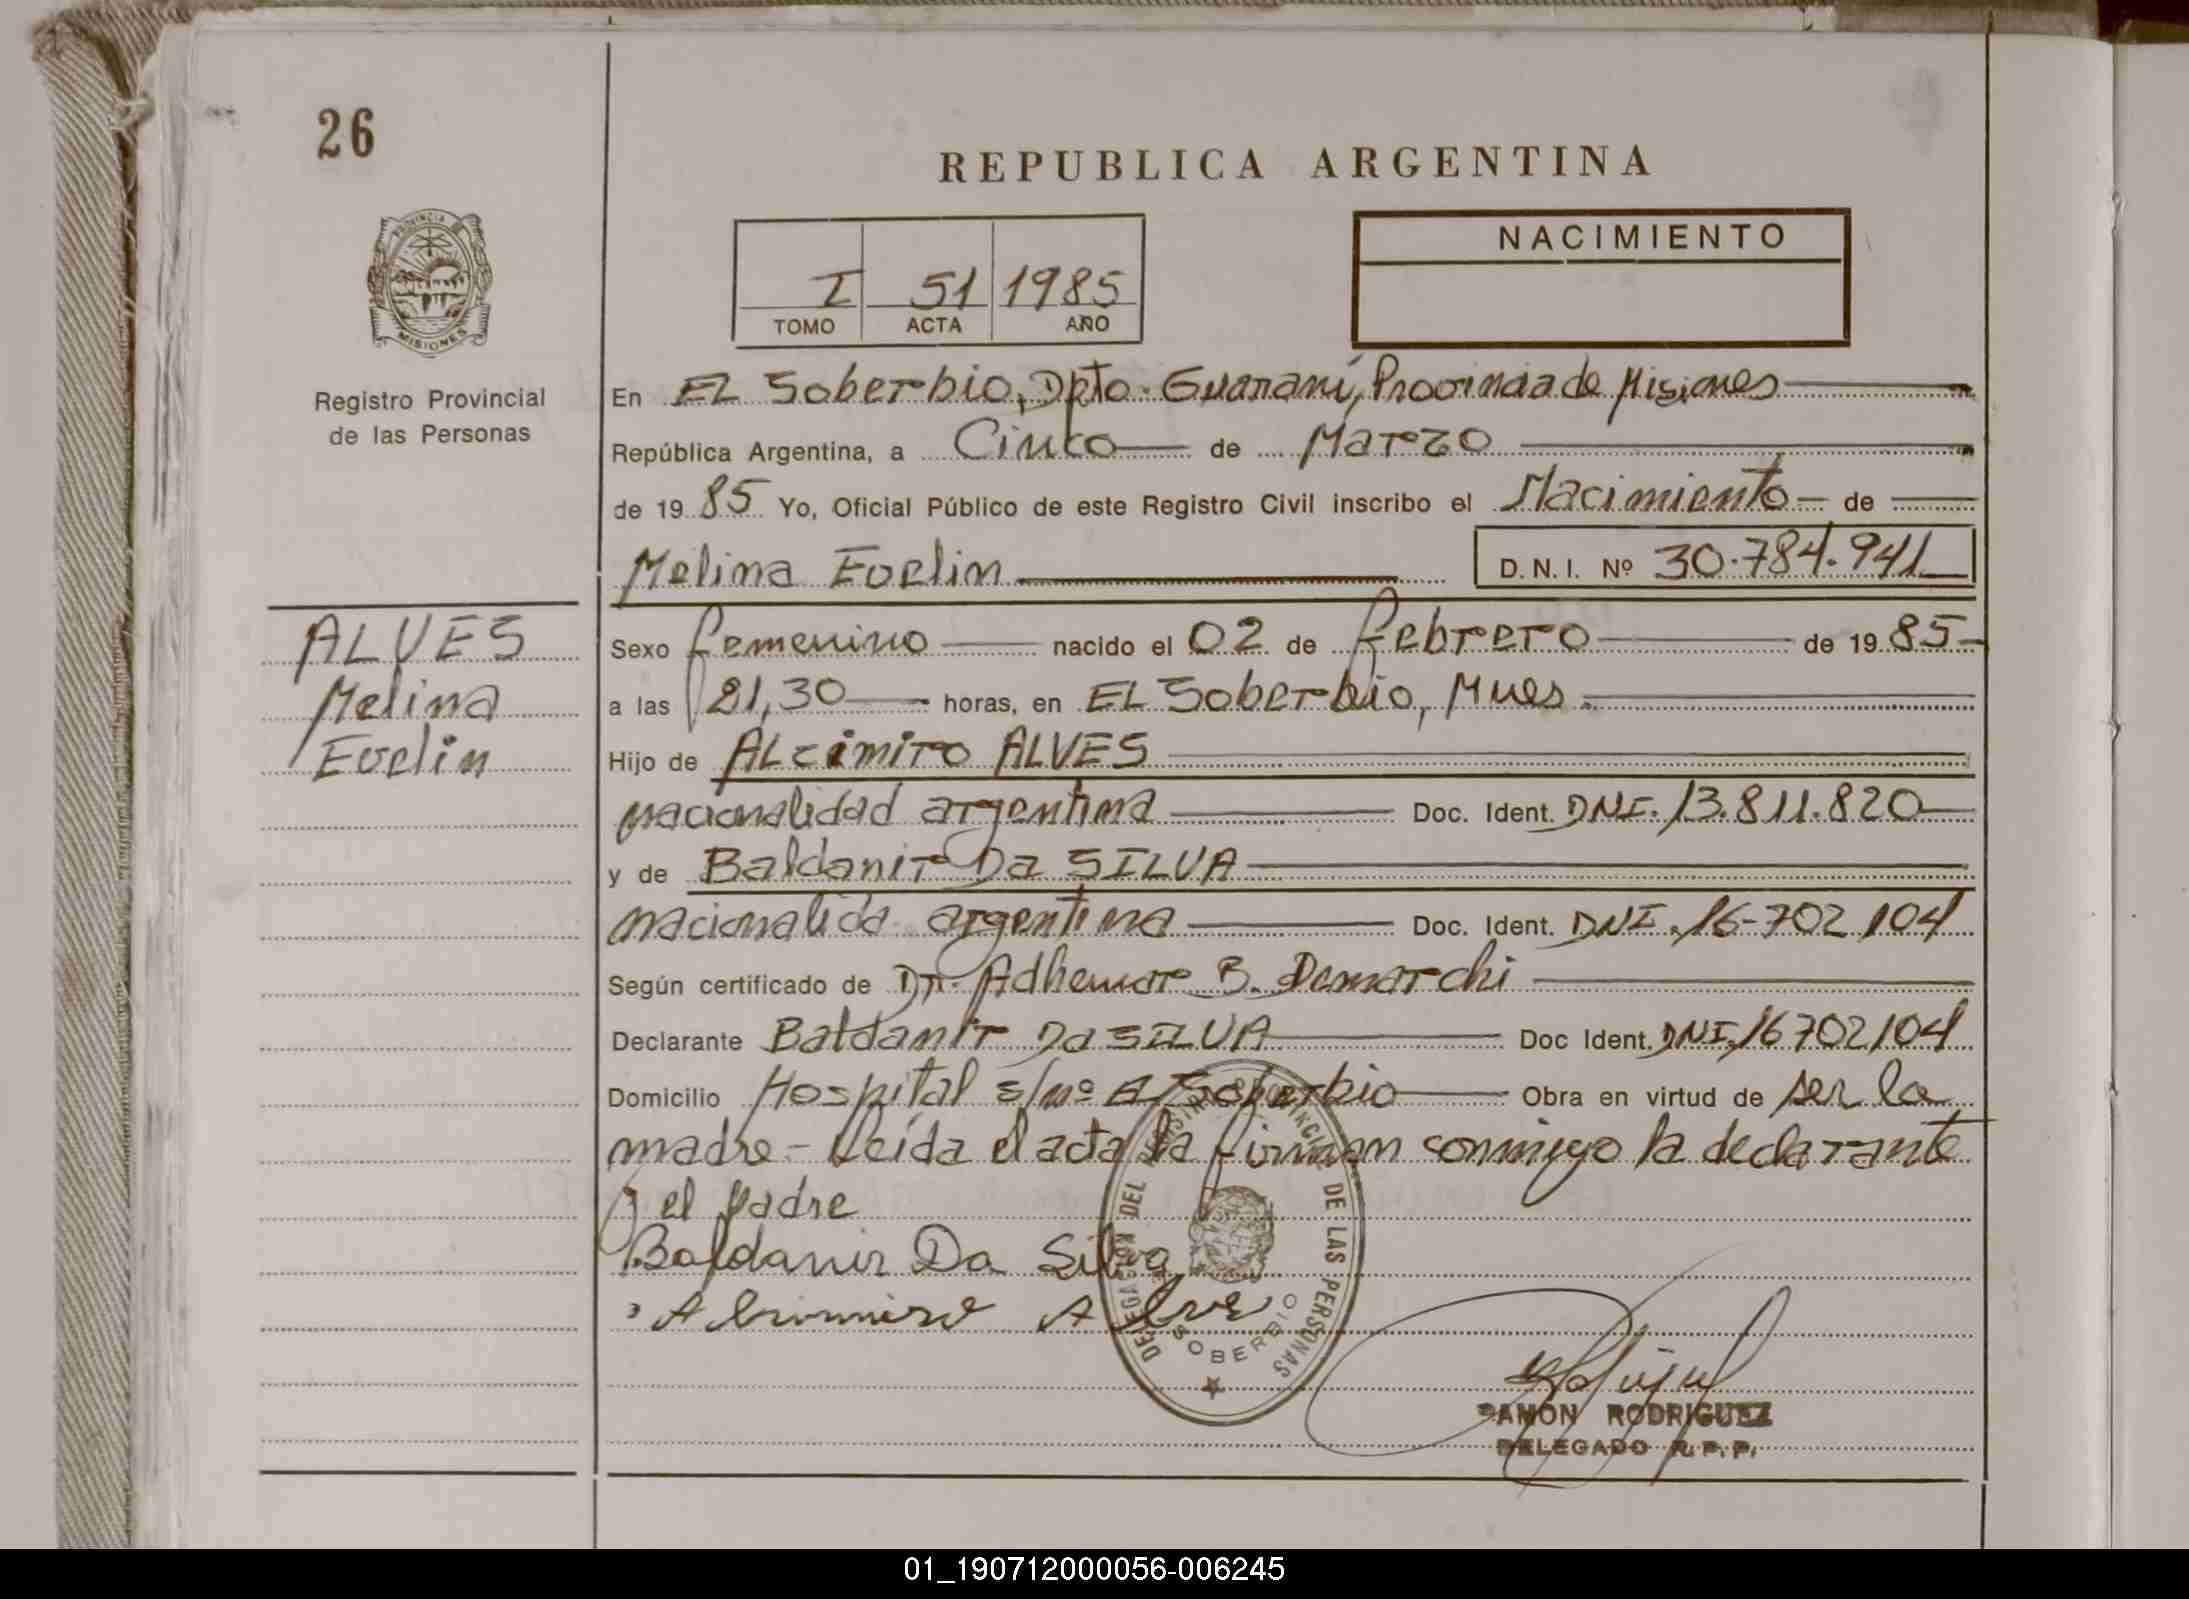 26
REPUBLICA ARGENTINA
PROVINCIA
MISIONES
Registro Provincial
de las Personas
I 51 1985
TOMO ACTA AÑO
NACIMIENTO
En EL Soberbio, Dpto. Guaraní, Provincia de Misiones
República Argentina, a Cinco de Marzo
de 1985 Yo, Oficial Público de este Registro Civil inscribo el Nacimiento de
Melina Evelin D.N.I. Nº 30.784.941
ALVES
Melina
Evelin
Sexo femenino nacido el 02 de febrero de 1985
a las 21,30 horas, en EL Soberbio, Mnes.
Hijo de ALcimiro ALVES
nacionalidad argentina Doc. Ident. DNI. 13.811.820
y de Baldanir Da SILVA
nacionalida argentina Doc. Ident. DNI. 16-702 104
Según certificado de Dr. Adhemar B. Demarchi
Declarante Baldanir Da SILVA Doc Ident. DNI. 16702104
Domicilio Hospital s/nº El Soberbio Obra en virtud de ser la
madre - Leída el acta la firman conmigo la declarante
y el padre
Baldanir Da Silva
DELEGACION DEL REGISTRO PROVINCIAL DE LAS PERSONAS
SOBERBIO
RAMON RODRIGUEZ
DELEGADO R.P.P.
01_190712000056-006245